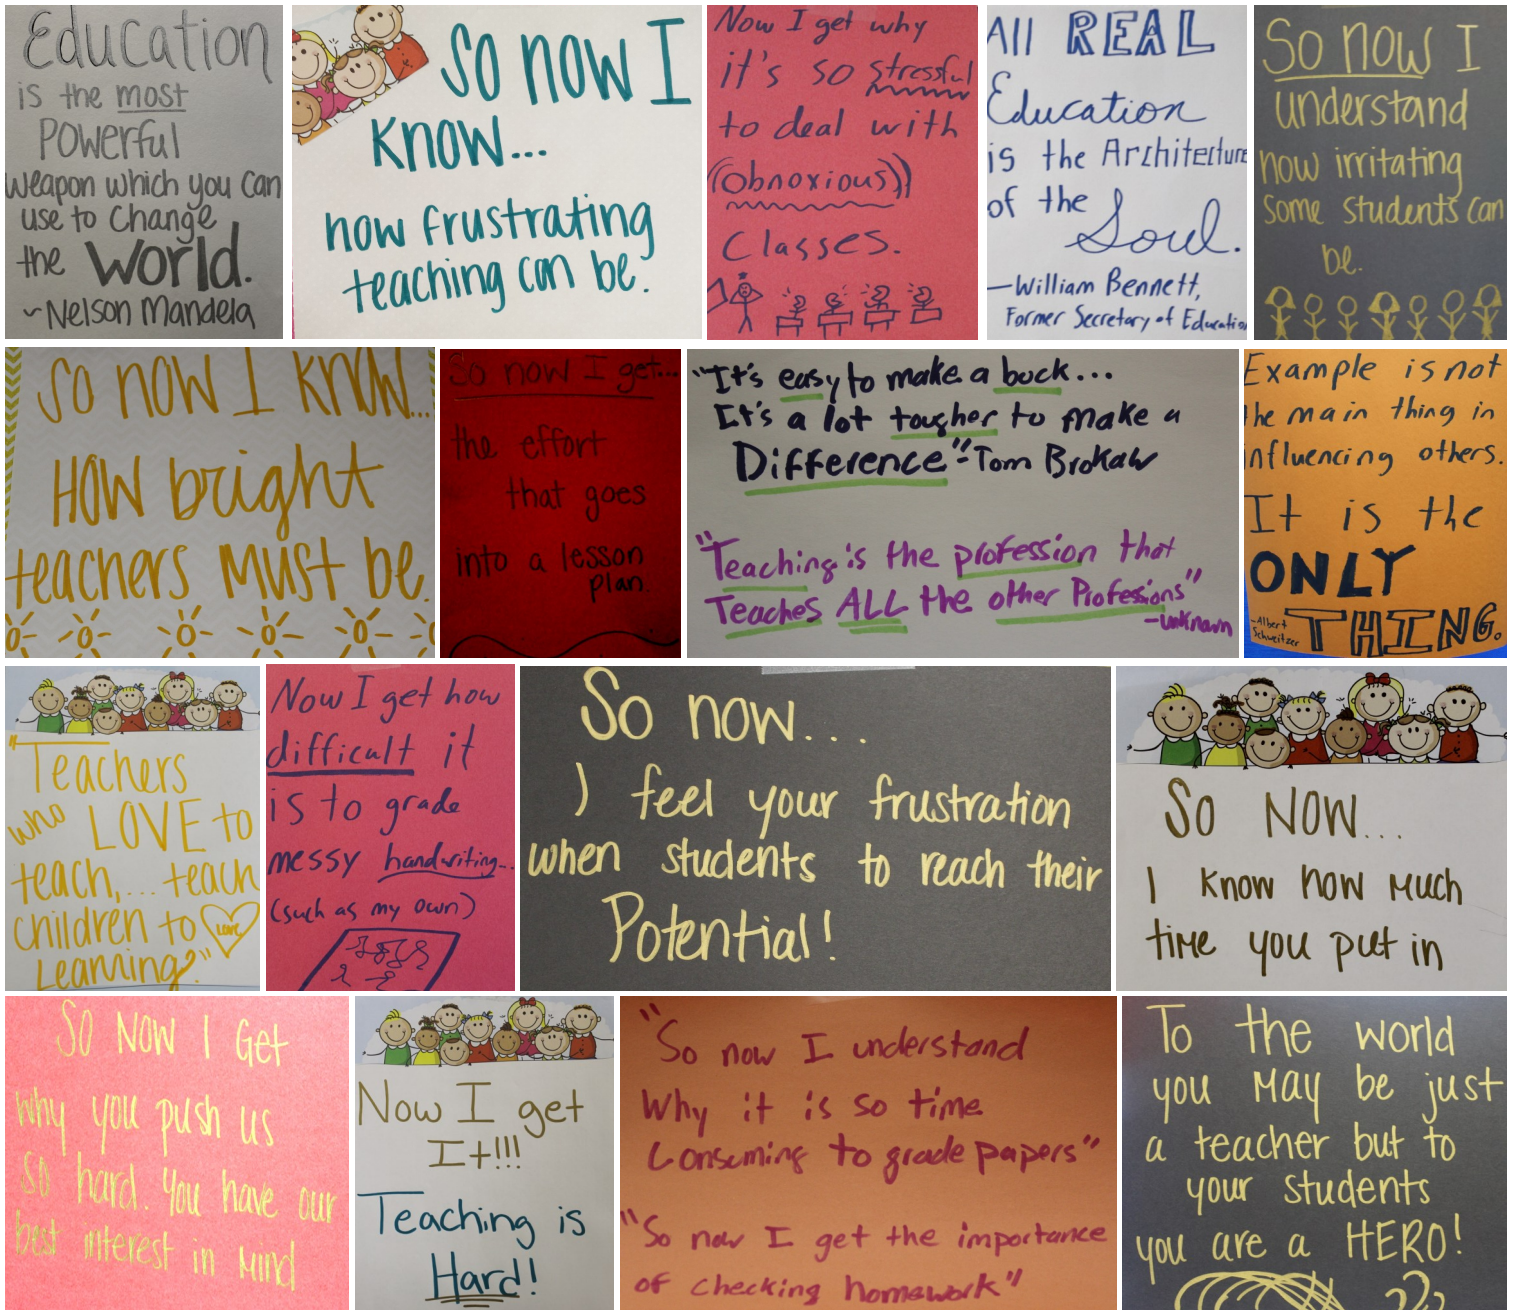 Education
is the most
Powerful
weapon which you can
use to change
the World.
~Nelson Mandela
So now I
know...
how frustrating
teaching can be.
Now I get why
it's so stressful
to deal with
((Obnoxious))
Classes.
All REAL
Education
is the Architecture
of the
Soul.
—William Bennett,
Former Secretary of Educatio
So now I
understand
how irritating
some students can
be.
So now I know...
How bright
teachers must be.
So now I get...
the effort
that goes
into a lesson
plan.
"It's easy to make a buck...
It's a lot tougher to make a
Difference"-Tom Brokaw
"Teaching is the profession that
Teaches ALL the other Professions"
-unknown
Example is not
the main thing in
influencing others.
It is the
ONLY
THING.
-Albert
Schweitzer
"Teachers
who LOVE to
teach,... teach
children to Love
Learning."
Now I get how
difficult it
is to grade
messy handwriting...
(such as my own)
So now...
I feel your frustration
when students to reach their
Potential!
So now...
I know how much
time you put in
So now I get
why you push us
so hard. You have our
best interest in mind
Now I get
It!!!
Teaching is
Hard!
"So now I understand
Why it is so time
Consuming to grade papers"
"So now I get the importance
of checking homework"
To the world
you may be just
a teacher but to
your students
you are a HERO!